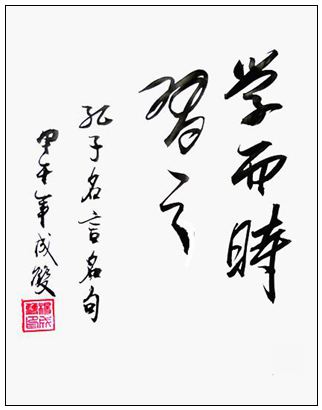 学而時
習之
孔子名言名句
甲午年成雙